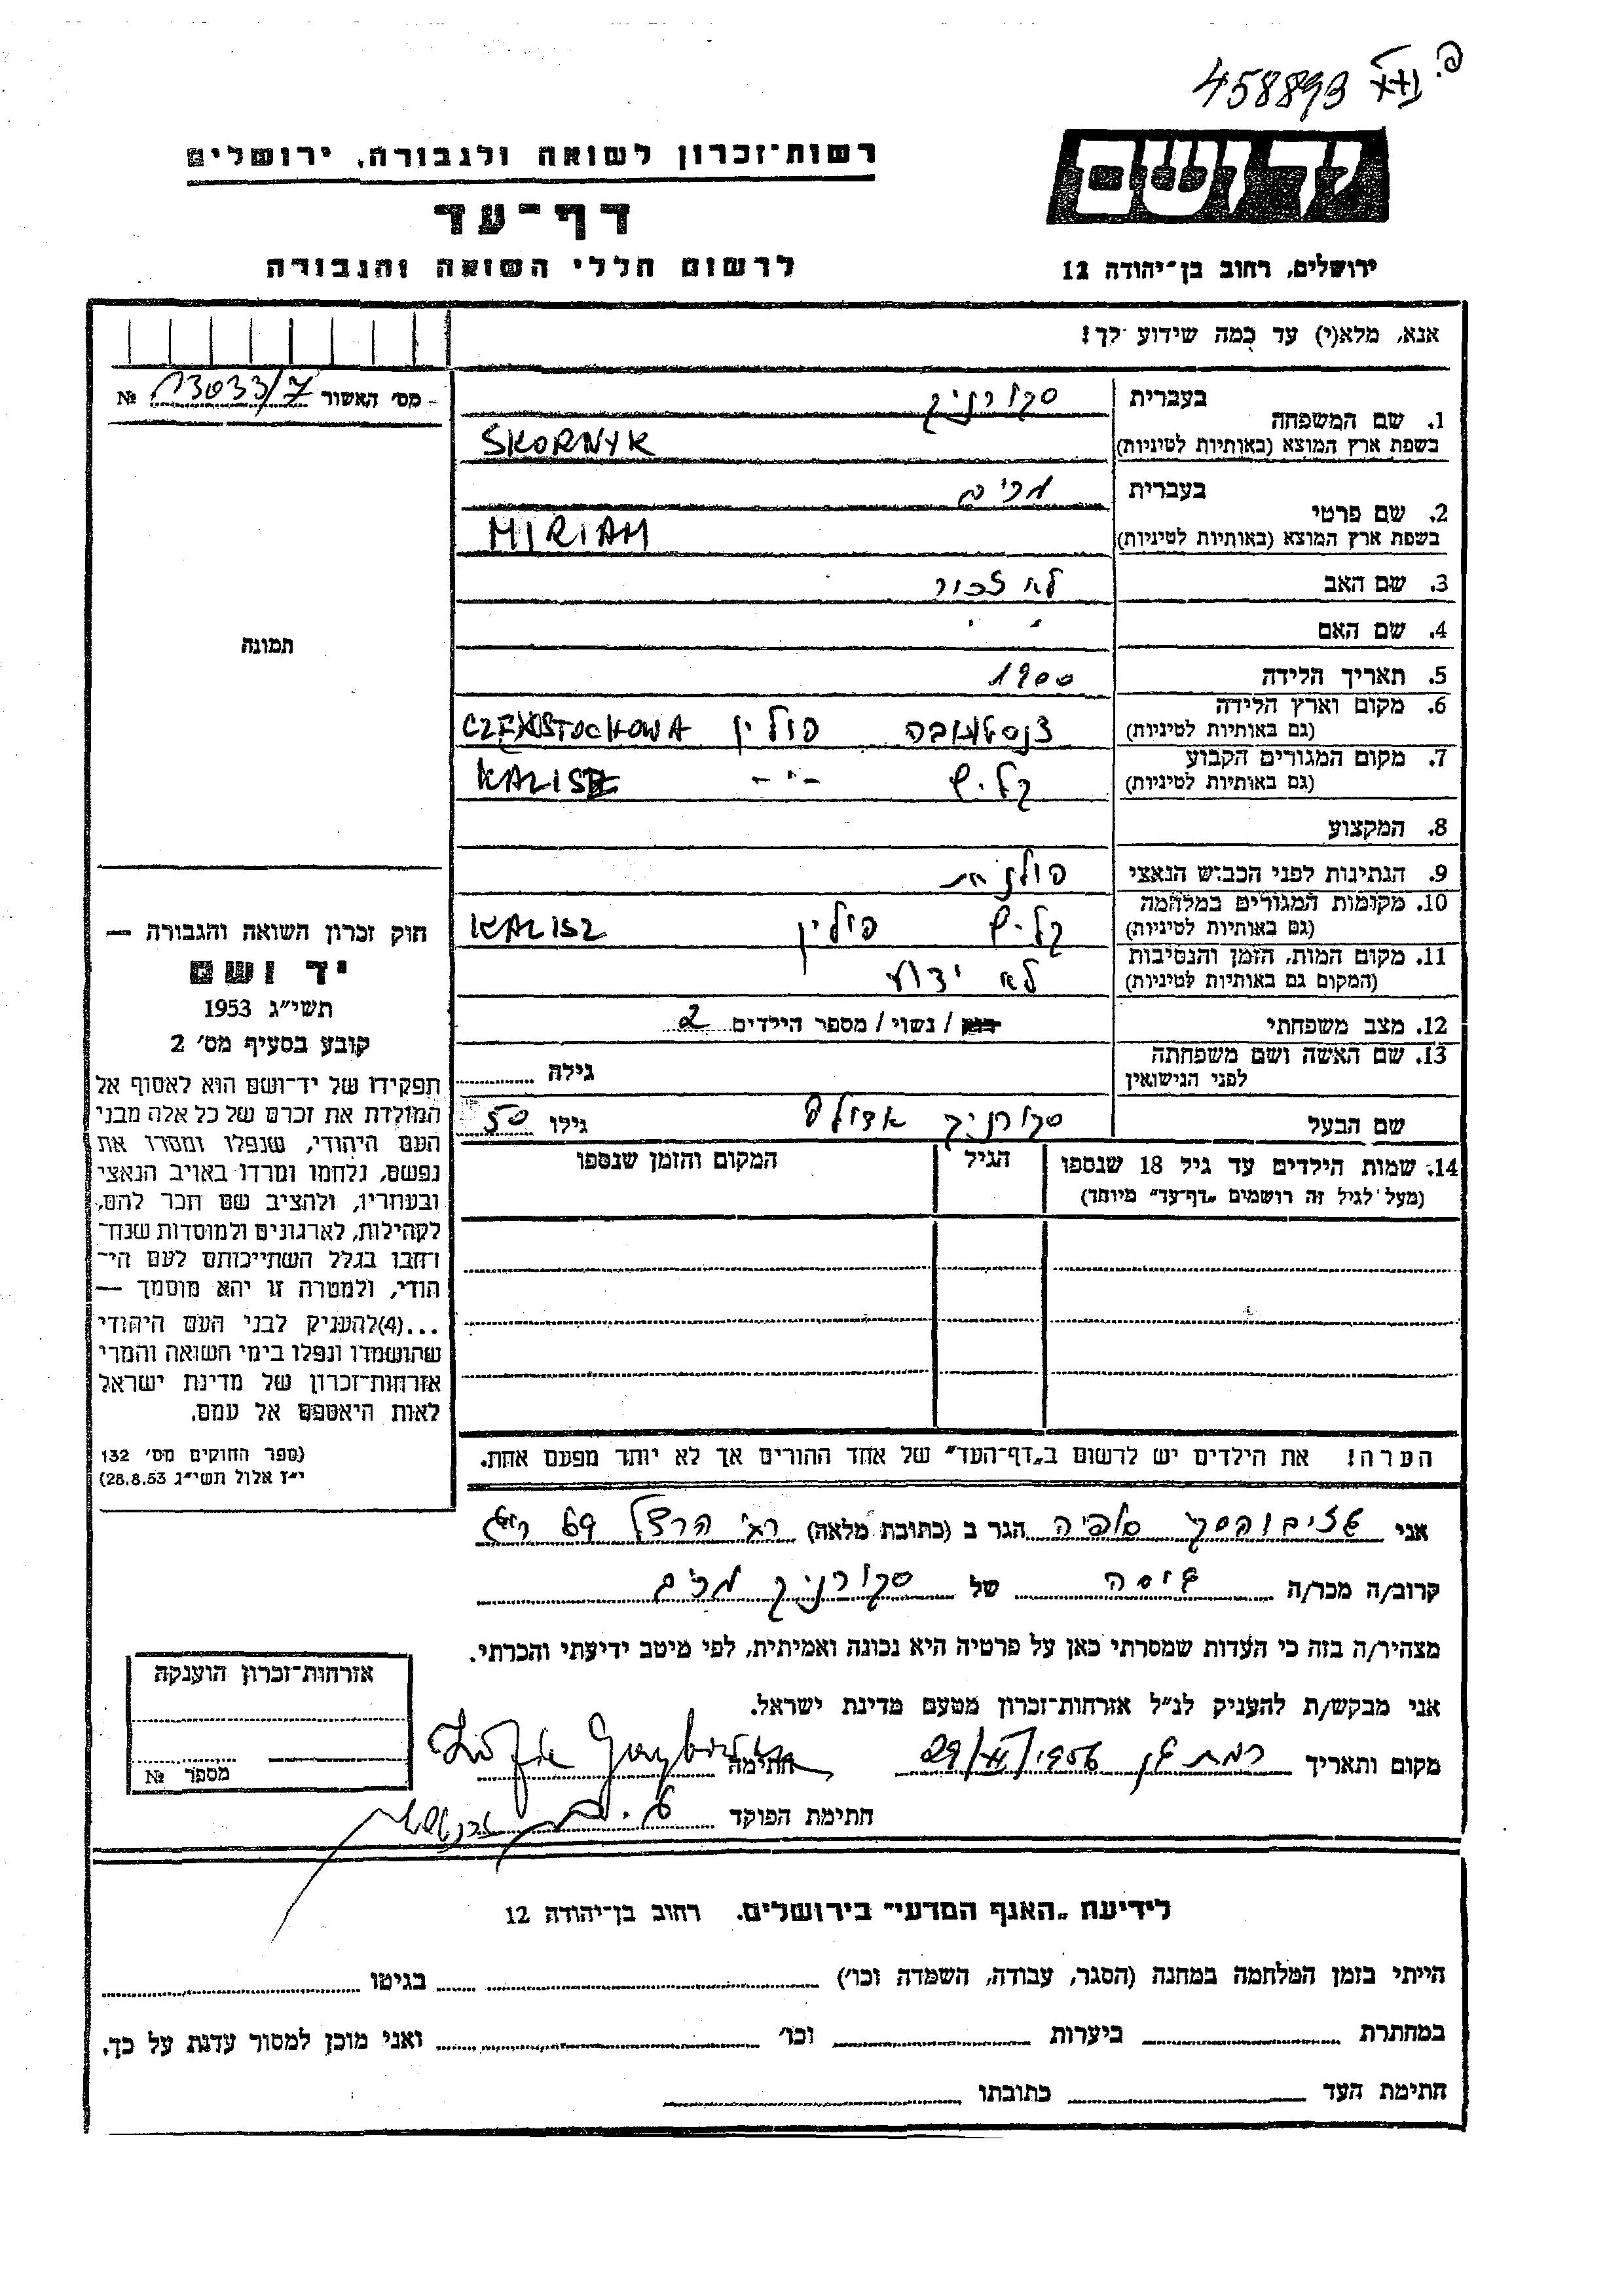 458893
יד ושם
רשות־זכרון לשואה ולגבורה, ירושלים
דף־עד
לרשום חללי השואה והגבורה
ירושלים, רחוב בן־יהודה 12
אנא, מלא(י) עד כמה שידוע לך!
מס׳ האשור 13033/7 №
תמונה
1. שם המשפחה בעברית סקורניק
בשפת ארץ המוצא (באותיות לטיניות) SKORNYK
2. שם פרטי בעברית מרים
בשפת ארץ המוצא (באותיות לטיניות) MIRIAM
3. שם האב לא זכור
4. שם האם " "
5. תאריך הלידה 1900
6. מקום וארץ הלידה
(גם באותיות לטיניות) צנסטוכובה פולין CZENSTOCHOWA
7. מקום המגורים הקבוע
(גם באותיות לטיניות) קליש -"- KALISZ
8. המקצוע
9. הנתינות לפני הכבוש הנאצי פולנית
10. מקומות המגורים במלחמה
(גם באותיות לטיניות) קליש פולין KALISZ
11. מקום המות, הזמן והנסיבות
(המקום גם באותיות לטיניות) לא ידוע
12. מצב משפחתי רווק / נשוי / מספר הילדים 2
13. שם האשה ושם משפחתה
לפני הנישואין גילה
שם הבעל סקורניק אדולף גילו 50
14. שמות הילדים עד גיל 18 שנספו הגיל המקום והזמן שנספו
(מעל לגיל זה רושמים „דף־עד״ מיוחד)
הערה! את הילדים יש לרשום ב„דף־העד״ של אחד ההורים אך לא יותר מפעם אחת.
חוק זכרון השואה והגבורה —
יד ושם
תשי״ג 1953
קובע בסעיף מס׳ 2
תפקידו של יד־ושם הוא לאסוף אל
המולדת את זכרם של כל אלה מבני
העם היהודי, שנפלו ומסרו את
נפשם, נלחמו ומרדו באויב הנאצי
ובעוזריו, ולהציב שם וזכר להם,
לקהילות, לארגונים ולמוסדות שנח־
רבו בגלל השתייכותם לעם הי־
הודי, ולמטרה זו יהא מוסמך —
...(4)להעניק לבני העם היהודי
שהושמדו ונפלו בימי השואה והמרי
אזרחות־זכרון של מדינת ישראל
לאות היאספם אל עמם.
(ספר החוקים מס׳ 132
י״ז אלול תשי״ג 28.8.53)
אני סופיה הגר ב (כתובת מלאה) הרצל 69
קרוב/ה מכר/ה גיסה של סקורניק מרים
מצהיר/ה בזה כי העדות שמסרתי כאן על פרטיה היא נכונה ואמיתית, לפי מיטב ידיעתי והכרתי.
אני מבקש/ת להעניק לנ״ל אזרחות־זכרון מטעם מדינת ישראל.
מקום ותאריך רמת גן 29/XI/1956 חתימה
חתימת הפוקד
אזרחות־זכרון הוענקה
מספר №
לידיעת „האגף המדעי״ בירושלים. רחוב בן־יהודה 12
הייתי בזמן המלחמה במחנה (הסגר, עבודה, השמדה וכו׳) בגיטו
במחתרת ביערות וכו׳ ואני מוכן למסור עדות על כך.
חתימת העד כתובתו